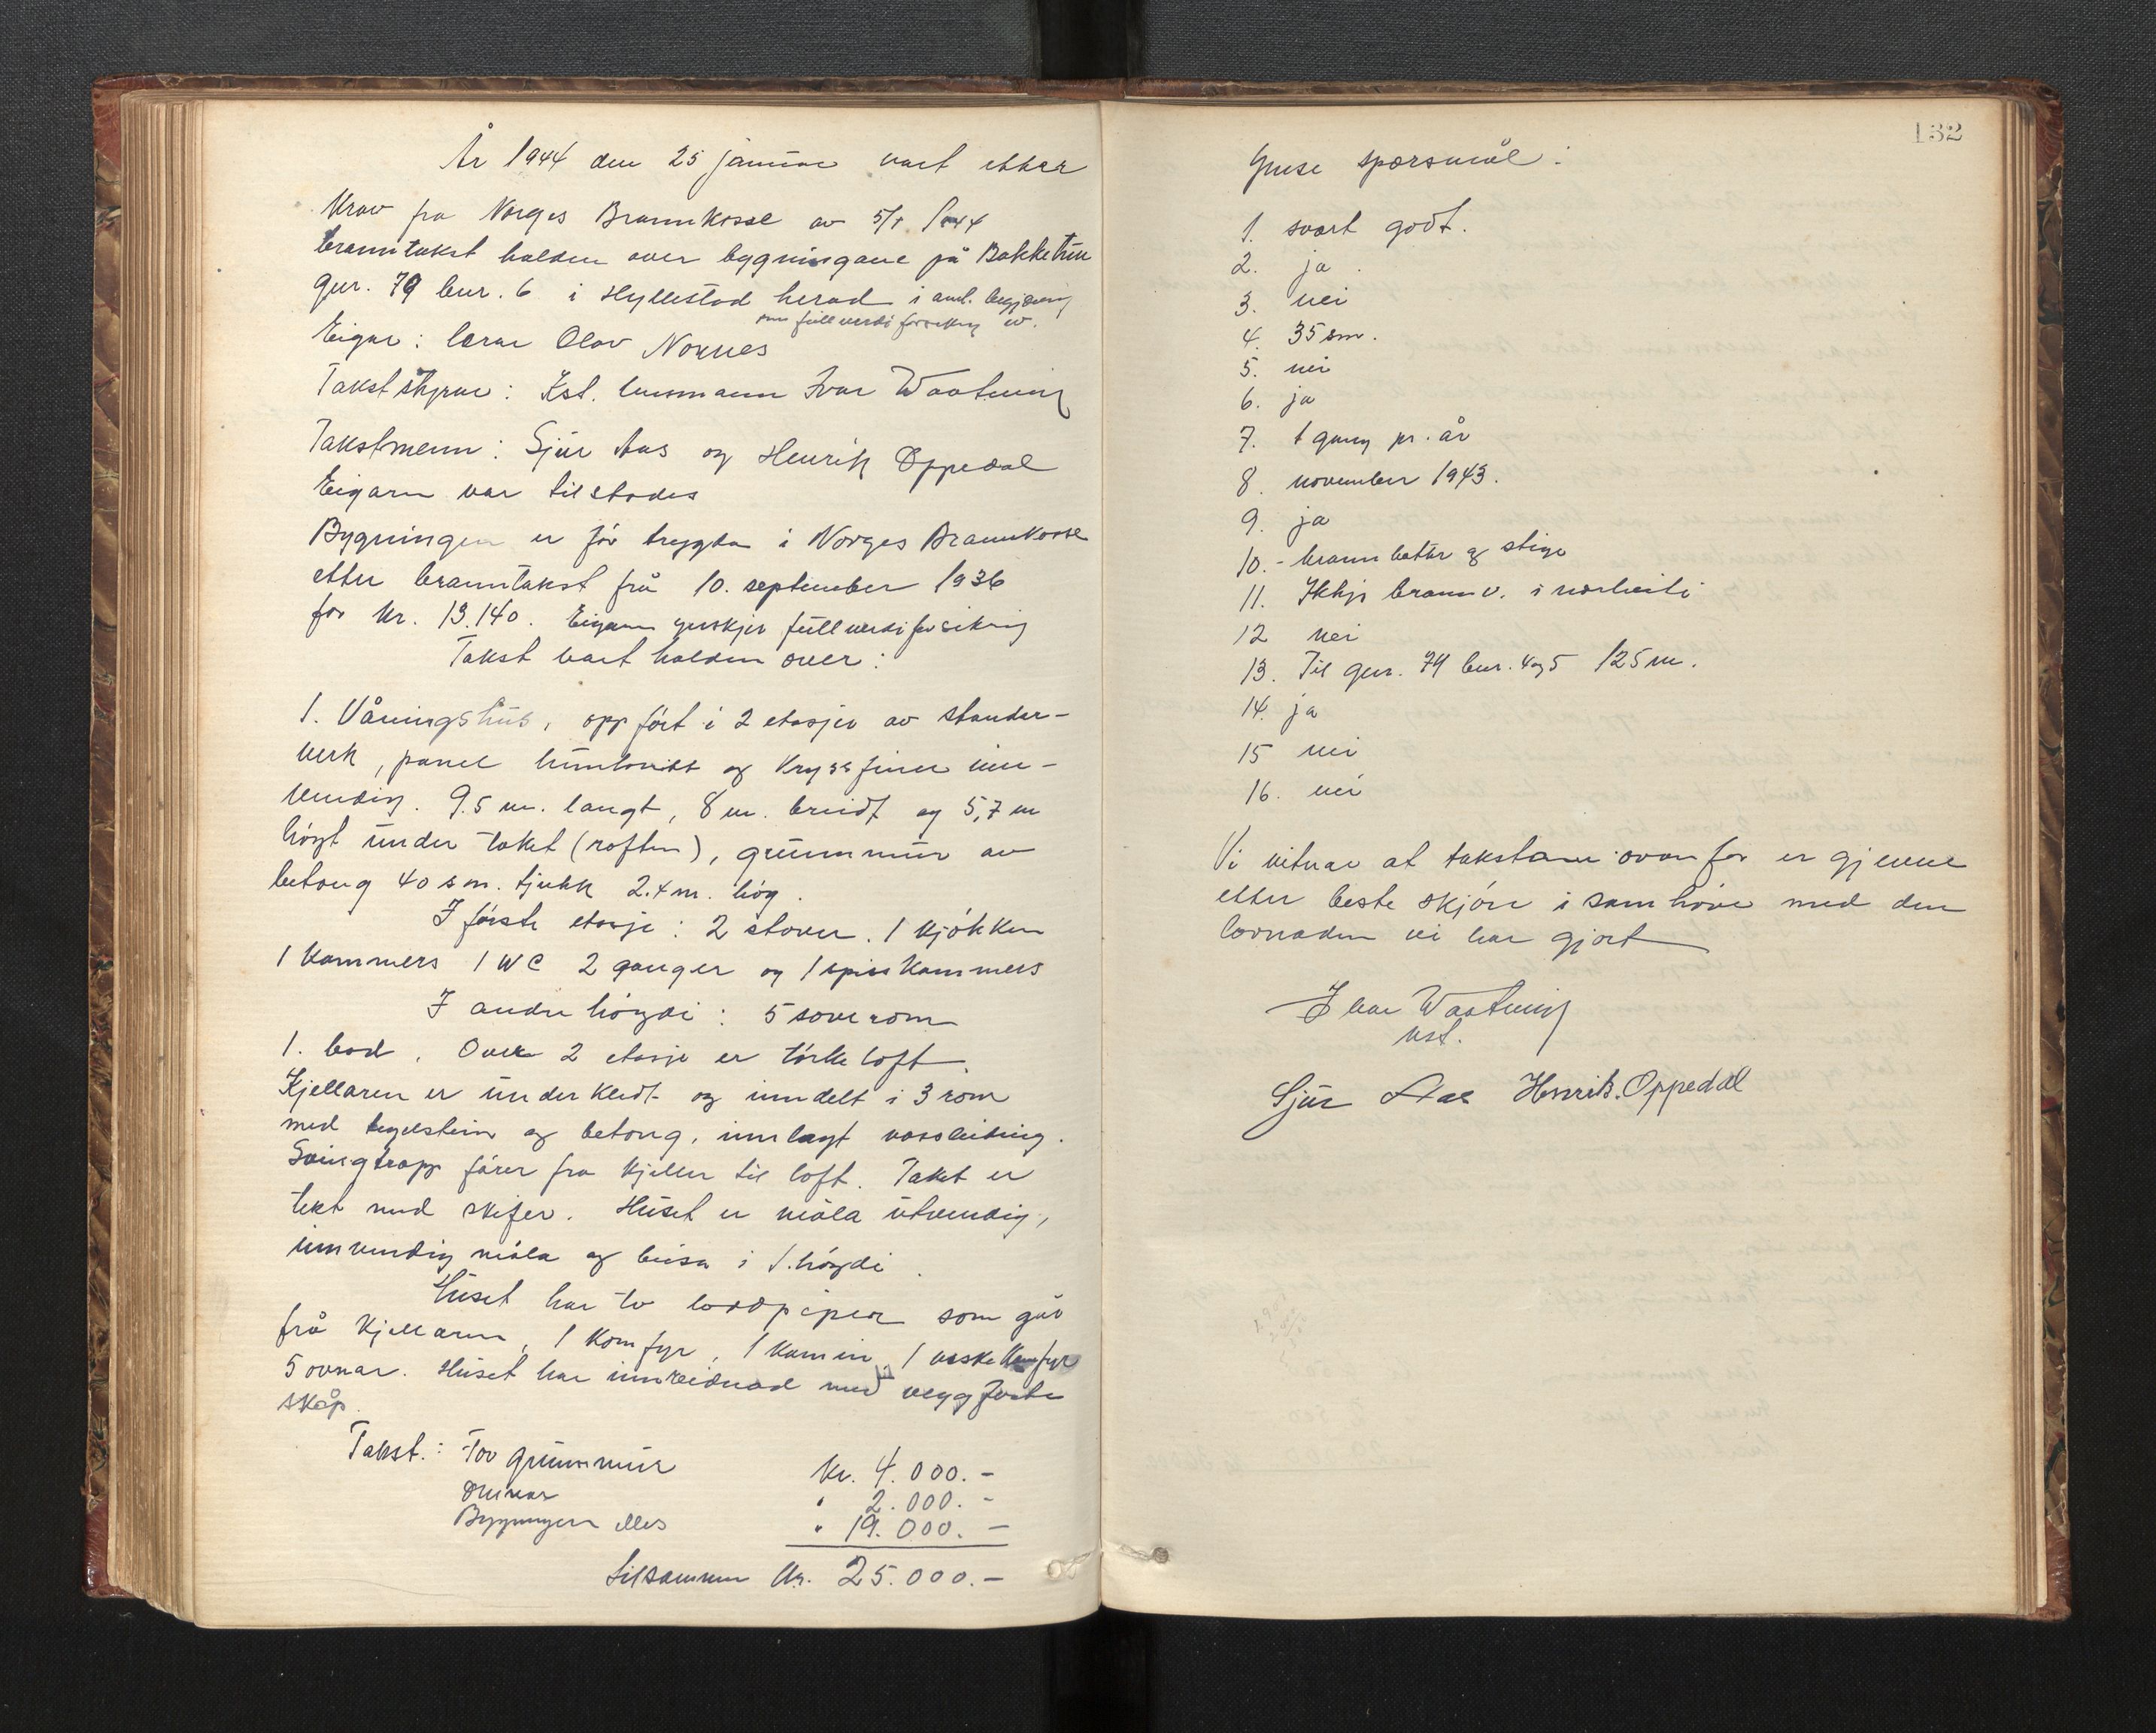 År 1944 den 25 januar vart etter
Krav fra Norges Brannkasse av 5/1 1944
branntakst halden over bygningane på Bakketun
gnr. 79 bnr. 6 i Hyllestad herad i anl. begjæring
om fullverdiforsikring av.
Eigar: lærar Olav Nornes
Takststyrar: Kst. lensmann Ivar Waatevig
Takstmenn: Sjur Aas og Henrik Oppedal
Eigaren var tilstades
Bygningen er för trygda i Norges Brannkasse
etter branntakst frå 10. september 1936
for kr. 13.140. Eigaren ynskjer fullverdiforsikring
Takst vart halden over:
1. Våningshus, oppfört i 2 etasjer av stander-
verk, panel huntonitt og Kryssfiner inn-
vendig. 9.5 m. langt, 8 m. breidt og 5,7 m
högt under taket (raften), grunnmur av
betong 40 sm. tjukk 2.4 m. hög.
I förste etasje: 2 stover. 1 kjökken
1 Kammers 1 WC 2 ganger og 1 spiskammers
I andre högdi: 5 soverom
1. bad. Over 2 etasje er törkeloft.
Kjellaren er underkledt og inndelt i 3 rom
med teglstein og betong, innlagt vassleidning.
Svingtrapp förer fra kjeller til loft. Taket er
tekt med skifer. Huset er måla utvendig,
innvendig måla og beisa i 1. högdi.
Huset har to loddpiper som går
frå kjellaren, 1 Komfyr, 1 kamin, 1 vaskekomfyr
5 ovnar. Huset har innreidnad med veggfaste
skåp.
Takst.: For grunnmur Kr. 4.000.-
Omnar " 2.000.-
Bygningen elles " 19.000.-
tilsamen Kr. 25.000.-
132
Ymse spørsmål:
1. svært godt.
2. ja.
3. nei
4. 35 sm.
5. nei
6. ja
7. 1 gang pr. år
8. november 1943.
9. ja
10. - brannbøtter og stige
11. Ikkje brannv. i nærheiti
12 nei
13. Til gnr. 79 bnr. 4 og 5 125 m.
14. ja
15 nei
16. nei
Vi vitnar at takstane ovanfor er gjevne
etter beste skjön i samhöve med den
lovnaden vi har gjort
Ivar Waatevig
kst.
Sjur Aas Henrik. Oppedal